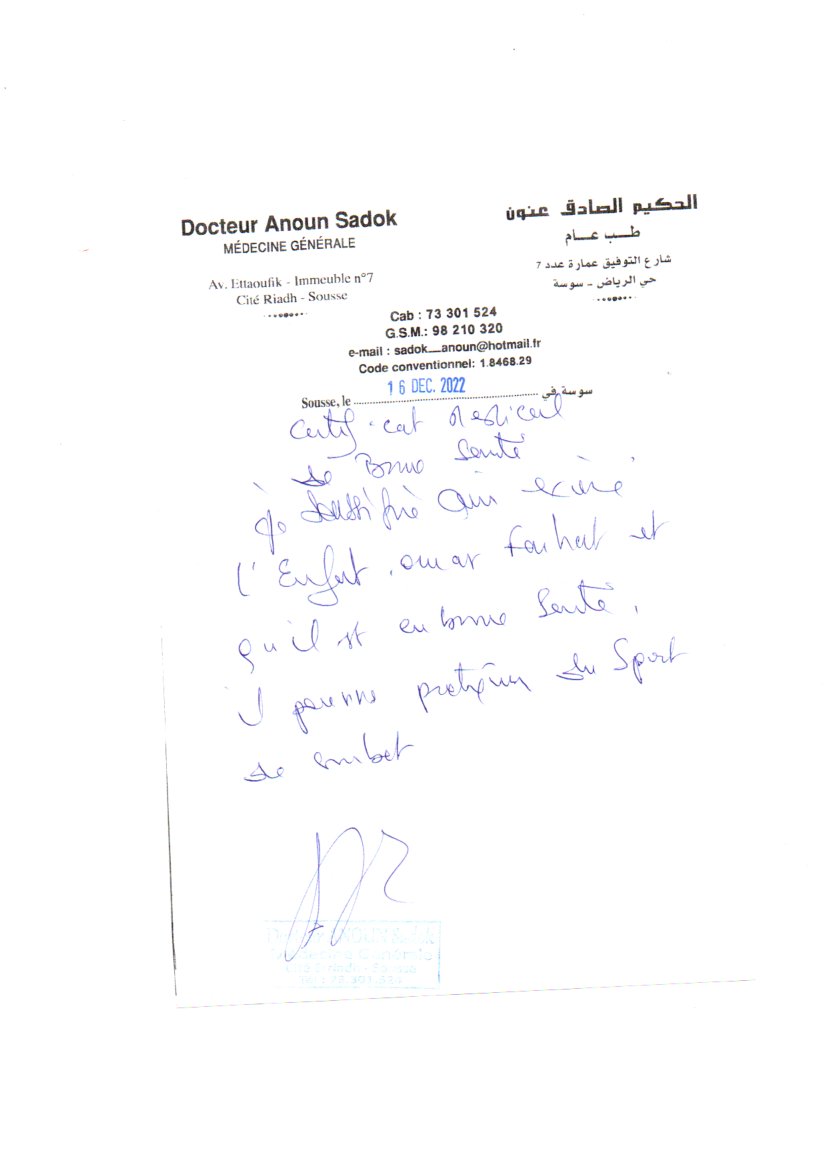 Docteur Anoun Sadok
MÉDECINE GÉNÉRALE
Av. Ettaoufik - Immeuble n°7
Cité Riadh - Sousse
الحكيم الصادق عنون
طب عام
شارع التوفيق عمارة عدد 7
حي الرياض - سوسة
Cab : 73 301 524
G.S.M.: 98 210 320
e-mail : sadok_anoun@hotmail.fr
Code conventionnel: 1.8468.29
Sousse, le 16 DEC. 2022 سوسة في
Certificat Medical
de Bonne Santé
Je
l'Enfant omar Farhat et
qu'il est en bonne Santé,
il pratiquer du Sport
de combat